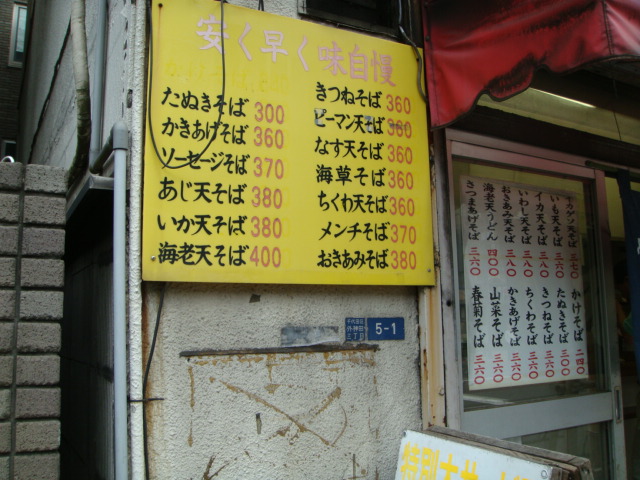 安く早く味自慢
たぬきそば 300
かきあげそば 360
ソーセージそば 370
あじ天そば 380
いか天そば 380
海老天そば 400
きつねそば 360
ピーマン天そば 360
なす天そば 360
海草そば 360
ちくわ天そば 360
メンチそば 370
おきあみそば 380
千代田区
外神田
三丁目
5-1
いも天そば 三六〇
イカ天そば 三八〇
いわし天そば 三八〇
おきあみ天そば 三八〇
海老天うどん 四〇〇
さつまあげそば 三六〇
かけそば 二四〇
たぬきそば 三〇〇
きつねそば 三六〇
ちくわそば 三六〇
かきあげそば 三六〇
山菜そば 三六〇
春菊そば 三六〇